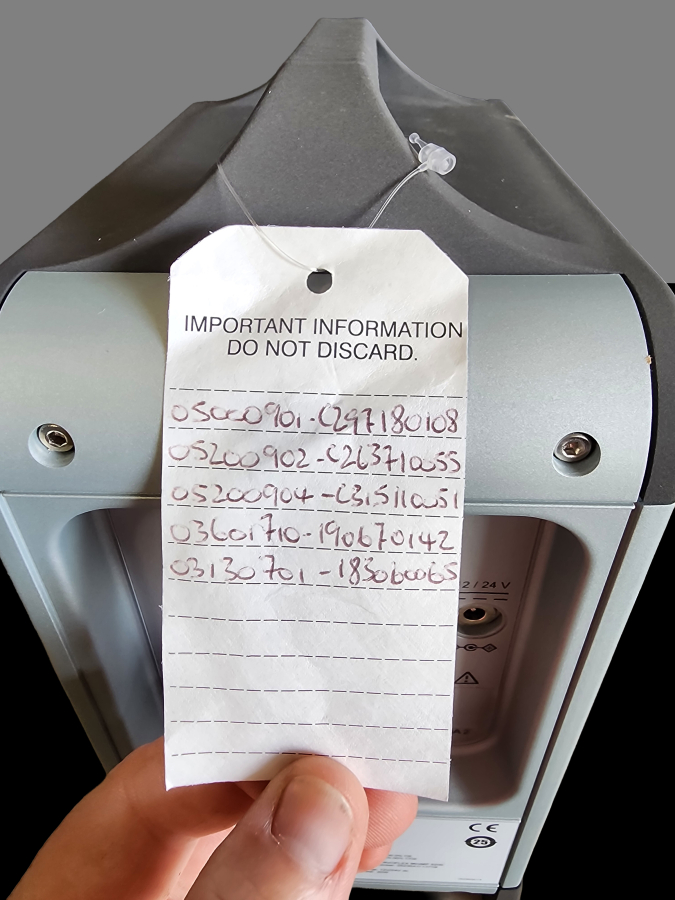 IMPORTANT INFORMATION
DO NOT DISCARD.
05200902-C263710055
05200904-C315110051
03601710-190670142
03130701-183060065
2/24 V
CE
25